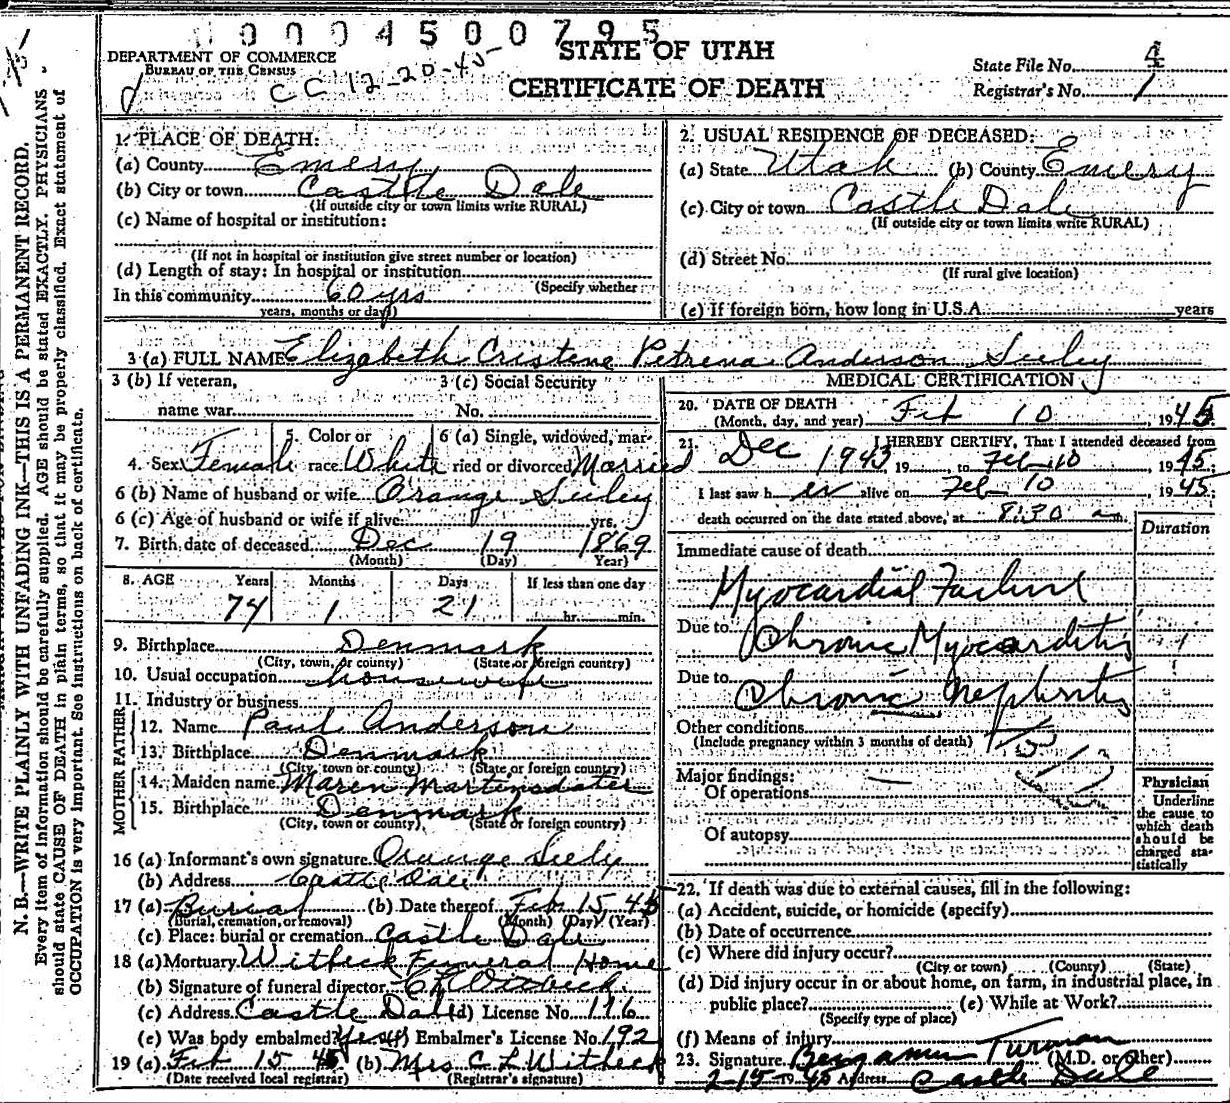 0004500795
DEPARTMENT OF COMMERCE
BUREAU OF THE CENSUS
CC 12-20-45
STATE OF UTAH
CERTIFICATE OF DEATH
State File No. 4
Registrar's No. 1
N. B.—WRITE PLAINLY WITH UNFADING INK—THIS IS A PERMANENT RECORD.
Every item of information should be carefully supplied. AGE should be stated EXACTLY. PHYSICIANS
should state CAUSE OF DEATH in plain terms, so that it may be properly classified. Exact statement of
OCCUPATION is very important. See instructions on back of certificate.
1. PLACE OF DEATH:
(a) County Emery
(b) City or town Castle Dale
(If outside city or town limits write RURAL)
(c) Name of hospital or institution:
(If not in hospital or institution give street number or location)
(d) Length of stay: In hospital or institution
(Specify whether
In this community 60 yrs
years, months or days)
2. USUAL RESIDENCE OF DECEASED:
(a) State Utah (b) County Emery
(c) City or town Castle Dale
(If outside city or town limits write RURAL)
(d) Street No.
(If rural give location)
(e) If foreign born, how long in U.S.A. years
3 (a) FULL NAME Elizabeth Cristene Petrena Anderson Seeley
3 (b) If veteran,
name war
3 (c) Social Security
No.
4. Sex Female
5. Color or
race White
6 (a) Single, widowed, mar-
ried or divorced Married
6 (b) Name of husband or wife Orange Seeley
6 (c) Age of husband or wife if alive yrs.
7. Birth date of deceased Dec 19 1869
(Month) (Day) Year)
8. AGE Years Months Days If less than one day
74 1 21 hr. min.
9. Birthplace Denmark
(City, town, or county) (State or foreign country)
10. Usual occupation housewife
11. Industry or business
FATHER
12. Name Paul Anderson
13. Birthplace Denmark
(City, town or county) (State or foreign country)
MOTHER
14. Maiden name Maren Martensdater
15. Birthplace Denmark
(City, town or county) (State or foreign country)
16 (a) Informant's own signature Orange Seely
(b) Address Castle Dale
17 (a) Burial (b) Date thereof Feb 15 45
(Burial, cremation, or removal) (Month) (Day) (Year)
(c) Place: burial or cremation Castle Dale
18 (a) Mortuary Witbeck Funeral Home
(b) Signature of funeral director C L Witbeck
(c) Address Castle Dale (d) License No. 116
(e) Was body embalmed? Yes (f) Embalmer's License No. 192
19 (a) Feb 15 45 (b) Mrs C L Witbeck
(Date received local registrar) (Registrar's signature)
MEDICAL CERTIFICATION
20. DATE OF DEATH
(Month, day, and year) Feb 10, 1945
21. I HEREBY CERTIFY, That I attended deceased from
Dec 1943 19, to Feb 10 1945;
I last saw her alive on Feb 10 1945;
death occurred on the date stated above, at 8:30 a m.
Duration
Immediate cause of death
Myocardial Failure
Due to Chronic Myocarditis 1
Due to Chronic Nephritis
Other conditions
(Include pregnancy within 3 months of death)
Major findings:
Of operations —
Of autopsy
Physician
Underline
the cause to
which death
should be
charged sta-
tistically
22. If death was due to external causes, fill in the following:
(a) Accident, suicide, or homicide (specify)
(b) Date of occurrence
(c) Where did injury occur?
(City or town) (County) (State)
(d) Did injury occur in or about home, on farm, in industrial place, in
public place? (e) While at Work?
(Specify type of place)
(f) Means of injury
23. Signature Benjamin Turman (M.D. or other)
2-15 1945 Address Castle Dale